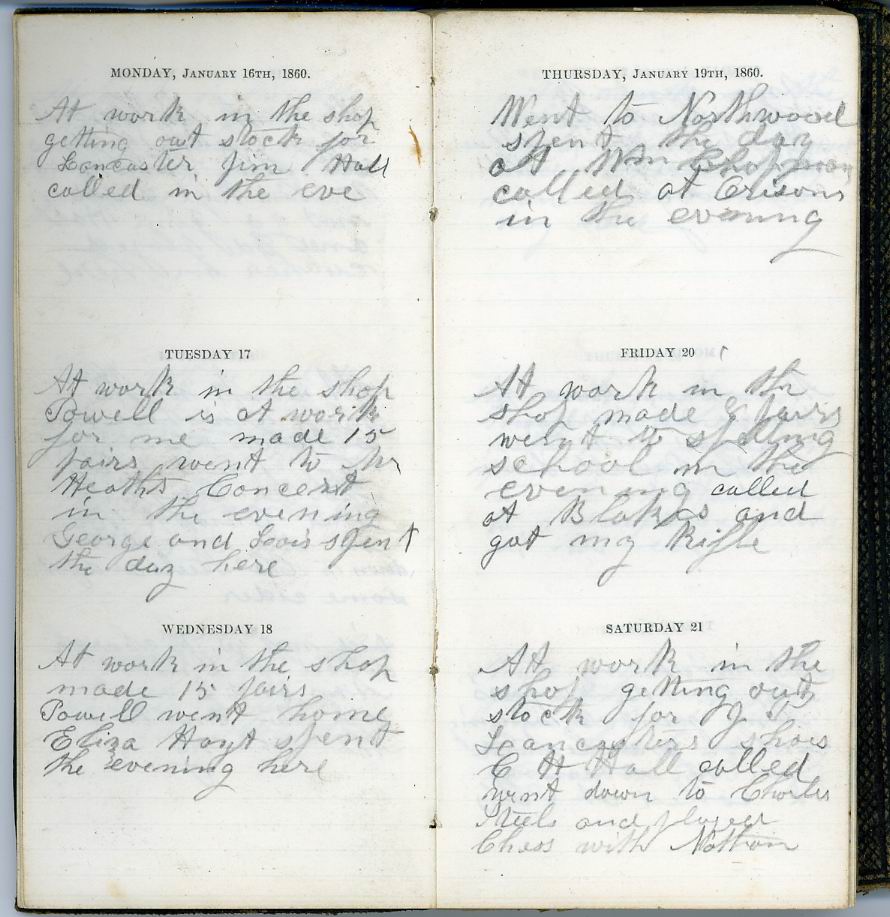 MONDAY, JANUARY 16TH, 1860.
At work in the shop
getting out stock for
Lancaster Jim Hall
called in the eve
TUESDAY 17
At work in the shop
Powell is at work
for me made 15
pairs went to Mr
Heaths Concert
in the evening
George and Lois spent
the day here
WEDNESDAY 18
At work in the shop
made 15 pairs
Powell went home
Eliza Hoyt spent
the evening here
THURSDAY, JANUARY 19TH, 1860.
Went to Northwood
spent the day
at Wm Chapman
called at Grisons
in the evening
FRIDAY 20
At work in the
shop made pairs
went to spelling
school in the
evening called
at Blakes and
got my Rifle
SATURDAY 21
At work in the
shop getting out
stock for J T
Lancasters shoes
C H Hall called
went down to Charles
Steels and played
Chess with Nathan